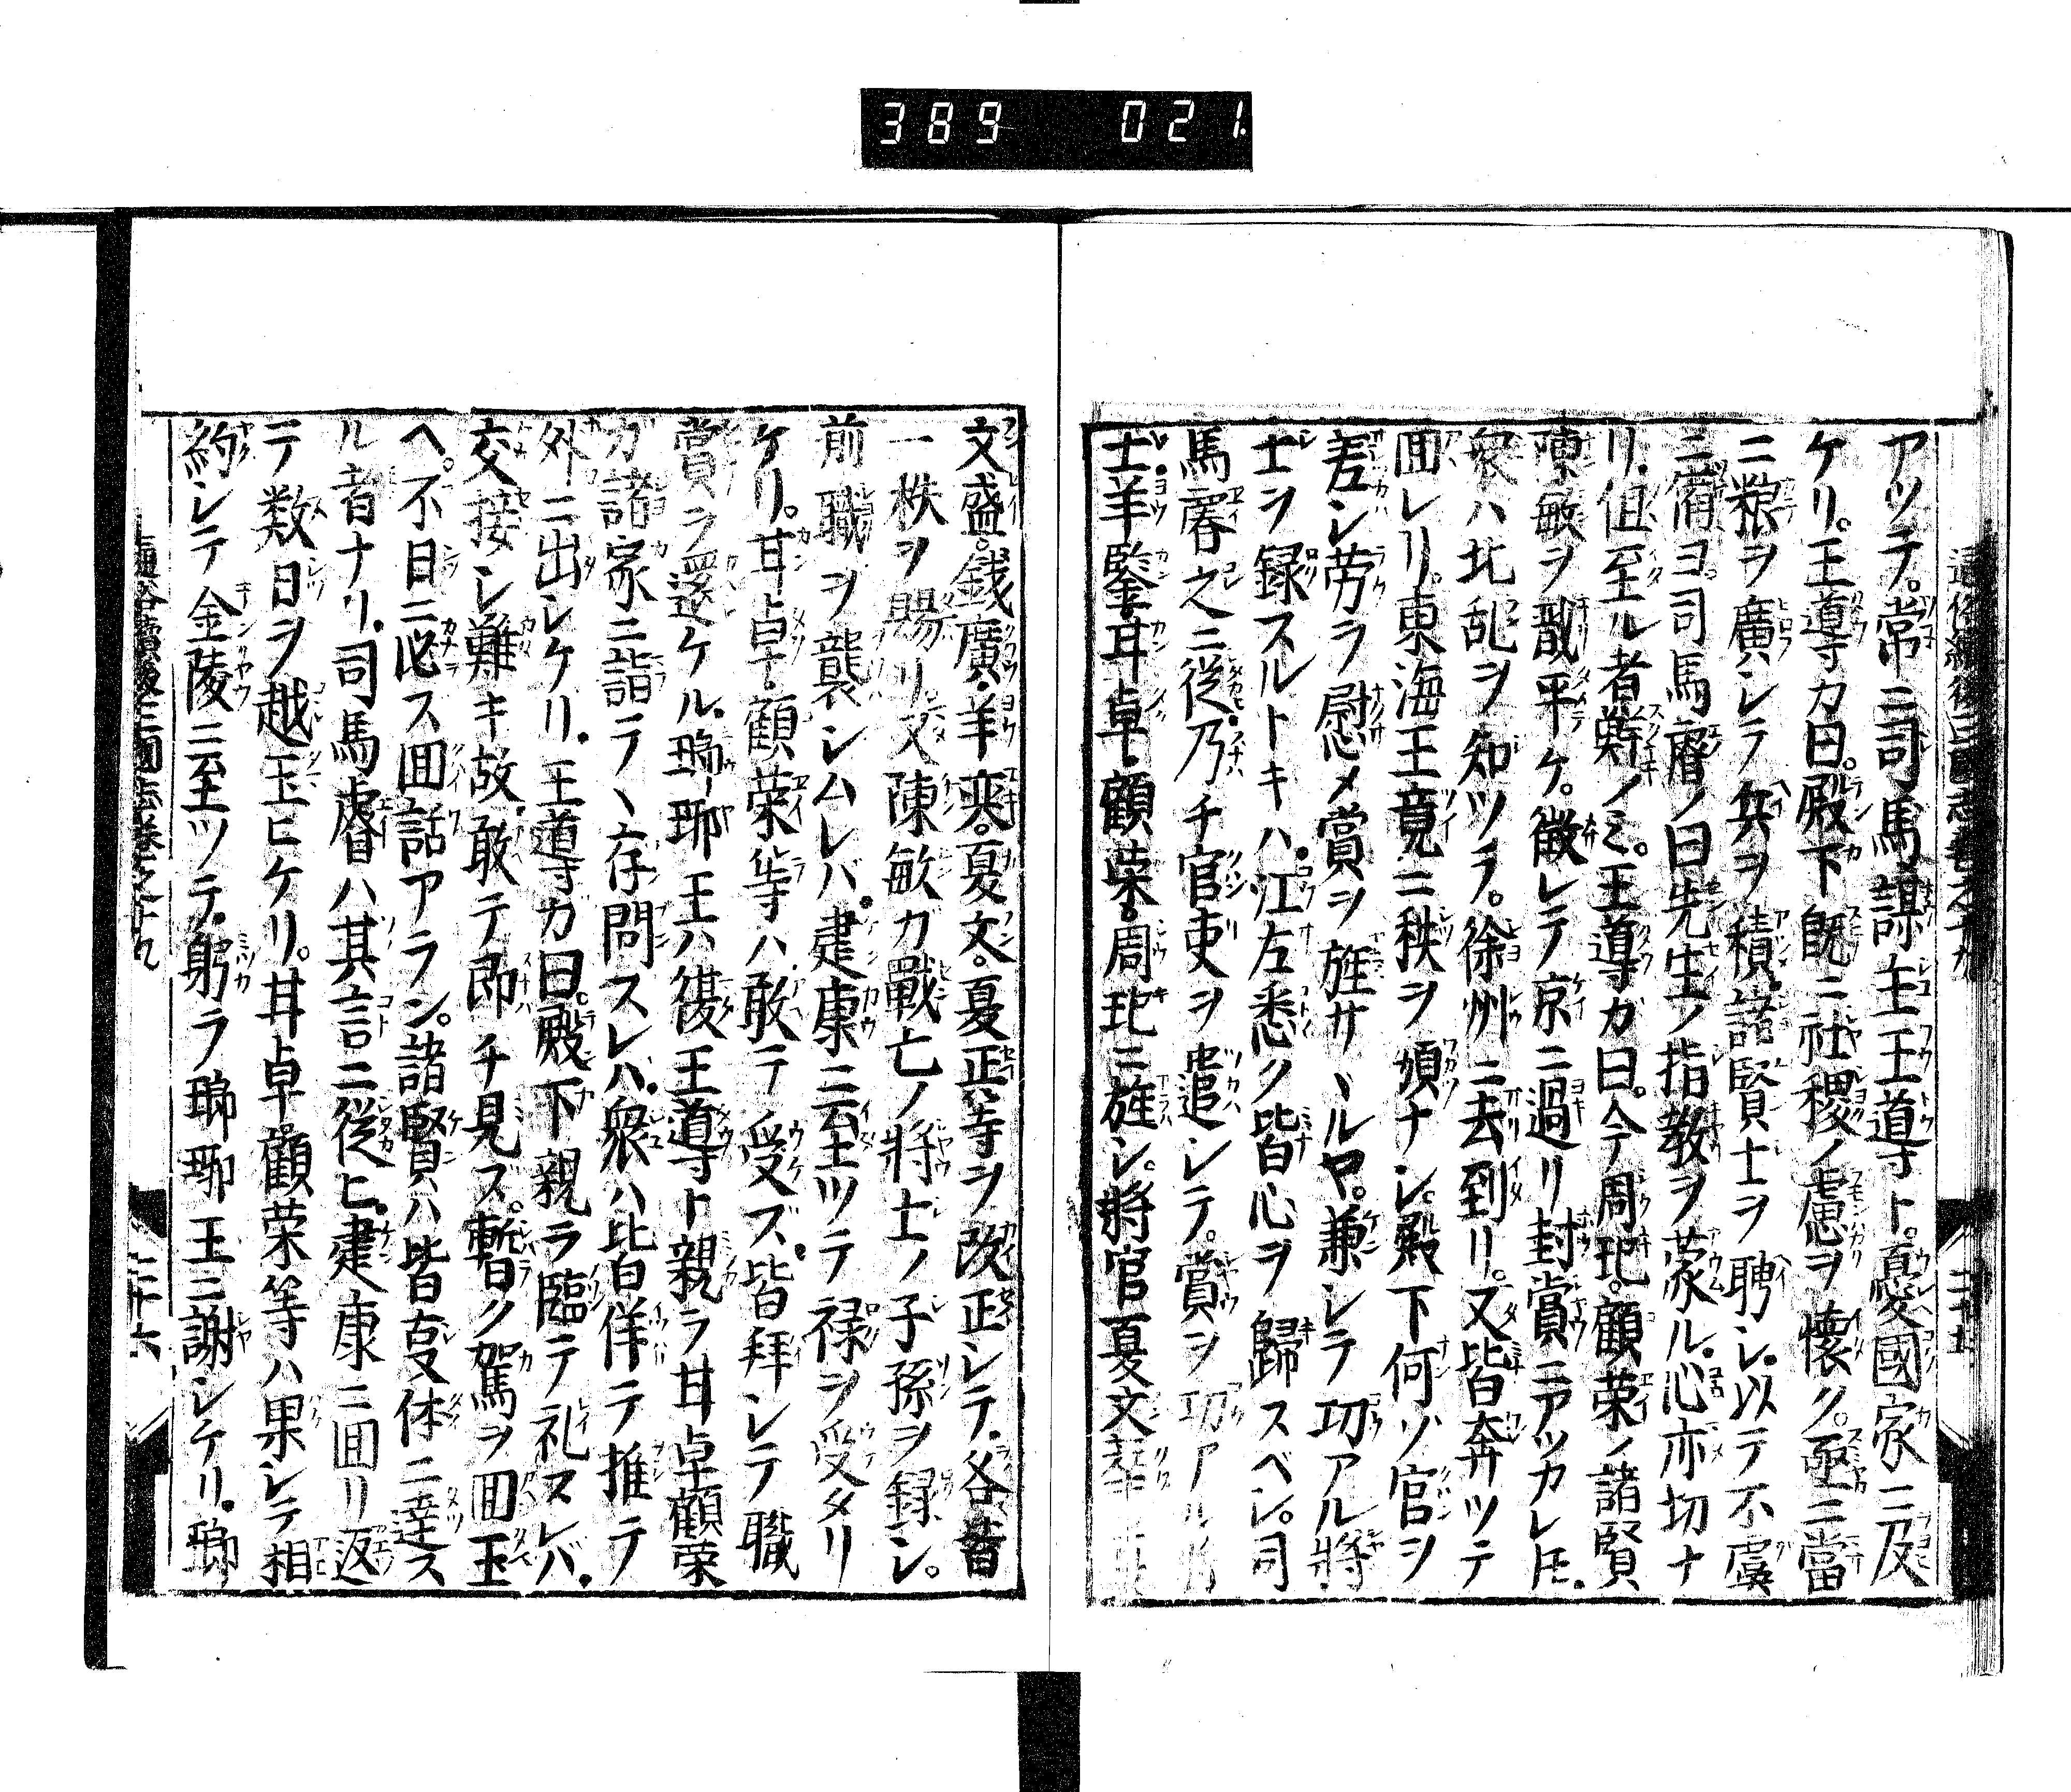 389 021
アツテ。常ニ司馬謀主王導ト。憂國家ニ及
ケリ。王導カ曰。殿下既ニ社稷ノ慮ヲ懐ク。亟ニ當
ニ粮ヲ廣シテ兵ヲ積。諸賢士ヲ聘シ。以テ不虞
ニ備ヨ。司馬睿ノ曰先生ノ指教ヲ蒙ル。心亦切ナ
リ。但至ル者尠ノミ。王導ガ曰。今周玘。顧荣ノ諸賢
陳敏ヲ散平ケ。徴シテ京ニ過リ封賞ニアツカレ𪜈。
衆ハ北乱ヲ知ツラ。徐州ニ去到リ。又皆奔ツテ
囬レリ。東海王竟ニ秩ヲ頒ナシ。殿下何ゾ官ヲ
差シ労ラ慰メ賞ヲ旌サヾルヤ。兼シテ功アル將
士ヲ録スルトキハ。江左悉ク皆心ヲ歸スベシ。司
馬睿之ニ従。乃チ官吏ヲ遣シテ。賞ヲ功アル將
士。羊鍳。耳卓。顧荣。周玘ニ旌シ。將官夏文華
文盛。銭廣。羊奕。夏文。夏正等ヲ改正シテ。各昔
一秩ヲ賜リ。又陳敏ガ戰亡ノ將士ノ子孫ヲ録シ。
前職ヲ襲シムレバ。建康ニ至ツテ禄ヲ受タリ
ケリ。甘卓。顧荣等ハ敢テ受ズ。皆拜シテ職
賞ラ還ケル。瑯琊王ハ復王導ト親ラ甘卓顧荣
ガ諸家ニ詣テヽ存問スレバ。衆ハ皆佯テ推テ
外ニ出シケリ。王導ガ曰。殿下親ラ臨テ礼スレバ。
交接シ難キ故敢テ即チ見ズ。暫ク駕ヲ囬玉
ヘ。不日ニ必ス囬話アラン。諸賢ハ皆叓体ニ達ス
ル者ナリ。司馬睿ハ其言ニ従ヒ。建康ニ囬リ返
テ数日ヲ越玉ヒケリ。甘卓。顧荣等ハ果シテ相
約シテ金陵ニ至ツテ。躬ラ瑯琊王ニ謝シケリ。瑯
二十六